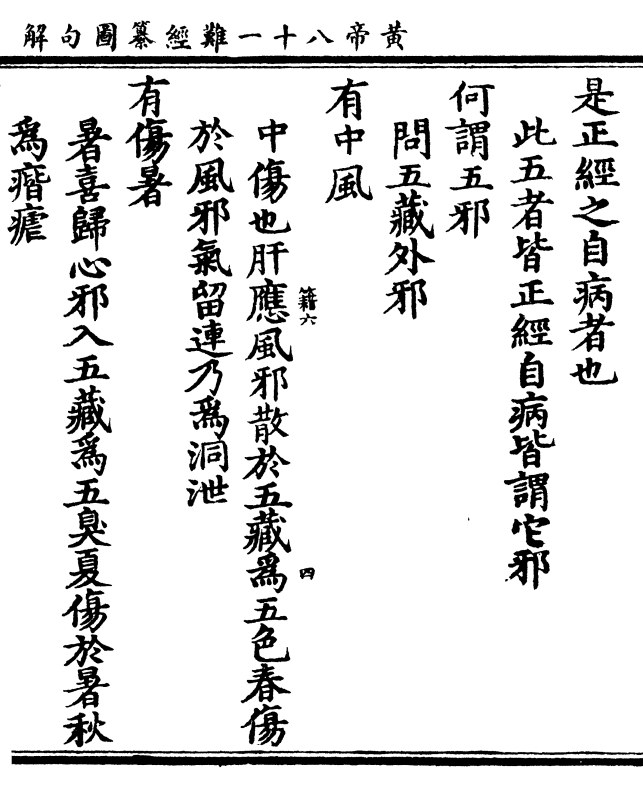 黃帝八十一難經纂圖句解
是正經之自病者也
此五者皆正經自病皆謂它邪
何謂五邪
問五藏外邪
有中風
籍六
四
中傷也肝應風邪散於五藏爲五色春傷
於風邪氣留連乃爲洞泄
有傷暑
暑喜歸心邪入五藏爲五臭夏傷於暑秋
爲痎瘧